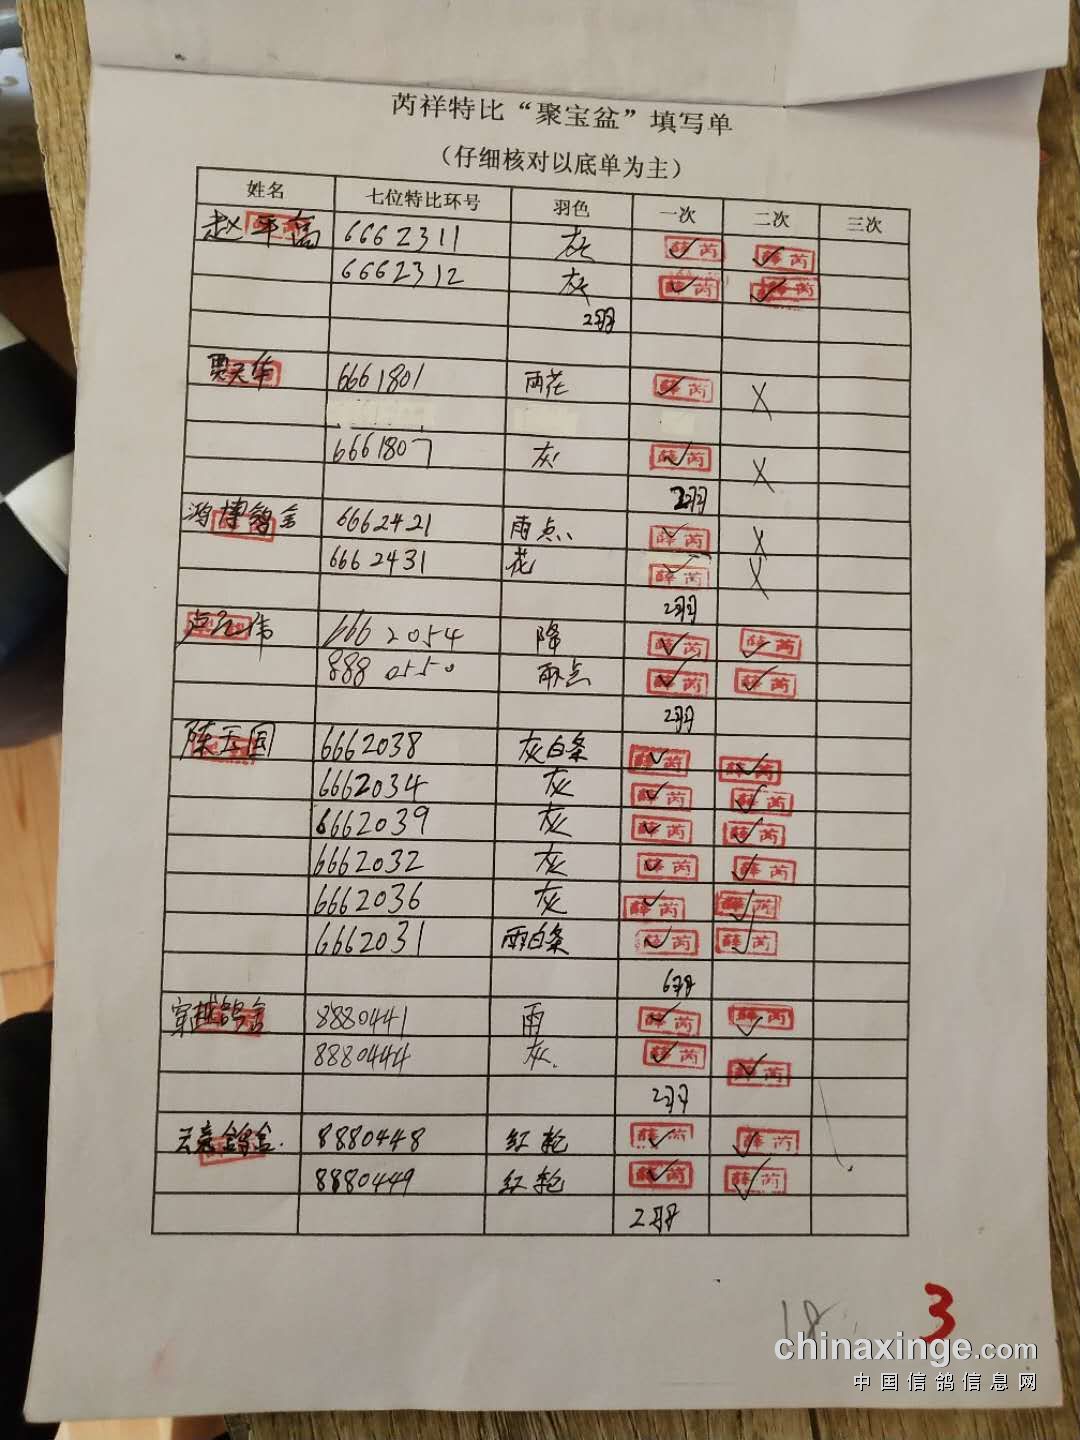 芮祥特比“聚宝盆”填写单
（仔细核对以底单为主）
姓名 七位特比环号 羽色 一次 二次 三次
赵平高 6662311 灰 ✓ 薛芮 ✓ 薛芮
6662312 灰 ✓ 薛芮 ✓ 薛芮
2羽
贾天华 6661801 雨花 ✓ 薛芮 X
6661807 灰 ✓ 薛芮 X
2羽
鸿博鸽舍 6662421 雨点 ✓ 薛芮 X
6662431 花 ✓ 薛芮 X
2羽
卢 伟 6662054 降 ✓ 薛芮 ✓ 薛芮
8880550 雨点 ✓ 薛芮 ✓ 薛芮
2羽
陈玉国 6662038 灰白条 ✓ 薛芮 ✓ 薛芮
6662034 灰 ✓ 薛芮 ✓ 薛芮
6662039 灰 ✓ 薛芮 ✓ 薛芮
6662032 灰 ✓ 薛芮 ✓ 薛芮
6662036 灰 ✓ 薛芮 ✓ 薛芮
6662031 雨白条 ✓ 薛芮 ✓ 薛芮
6羽
穿越鸽舍 8880441 雨 ✓ 薛芮 ✓ 薛芮
8880444 灰 ✓ 薛芮 ✓ 薛芮
2羽
鸽舍 8880448 红轮 ✓ 薛芮 ✓ 薛芮
8880449 红轮 ✓ 薛芮 ✓ 薛芮
2羽
18
3
chinaxinge.com
中国信鸽信息网